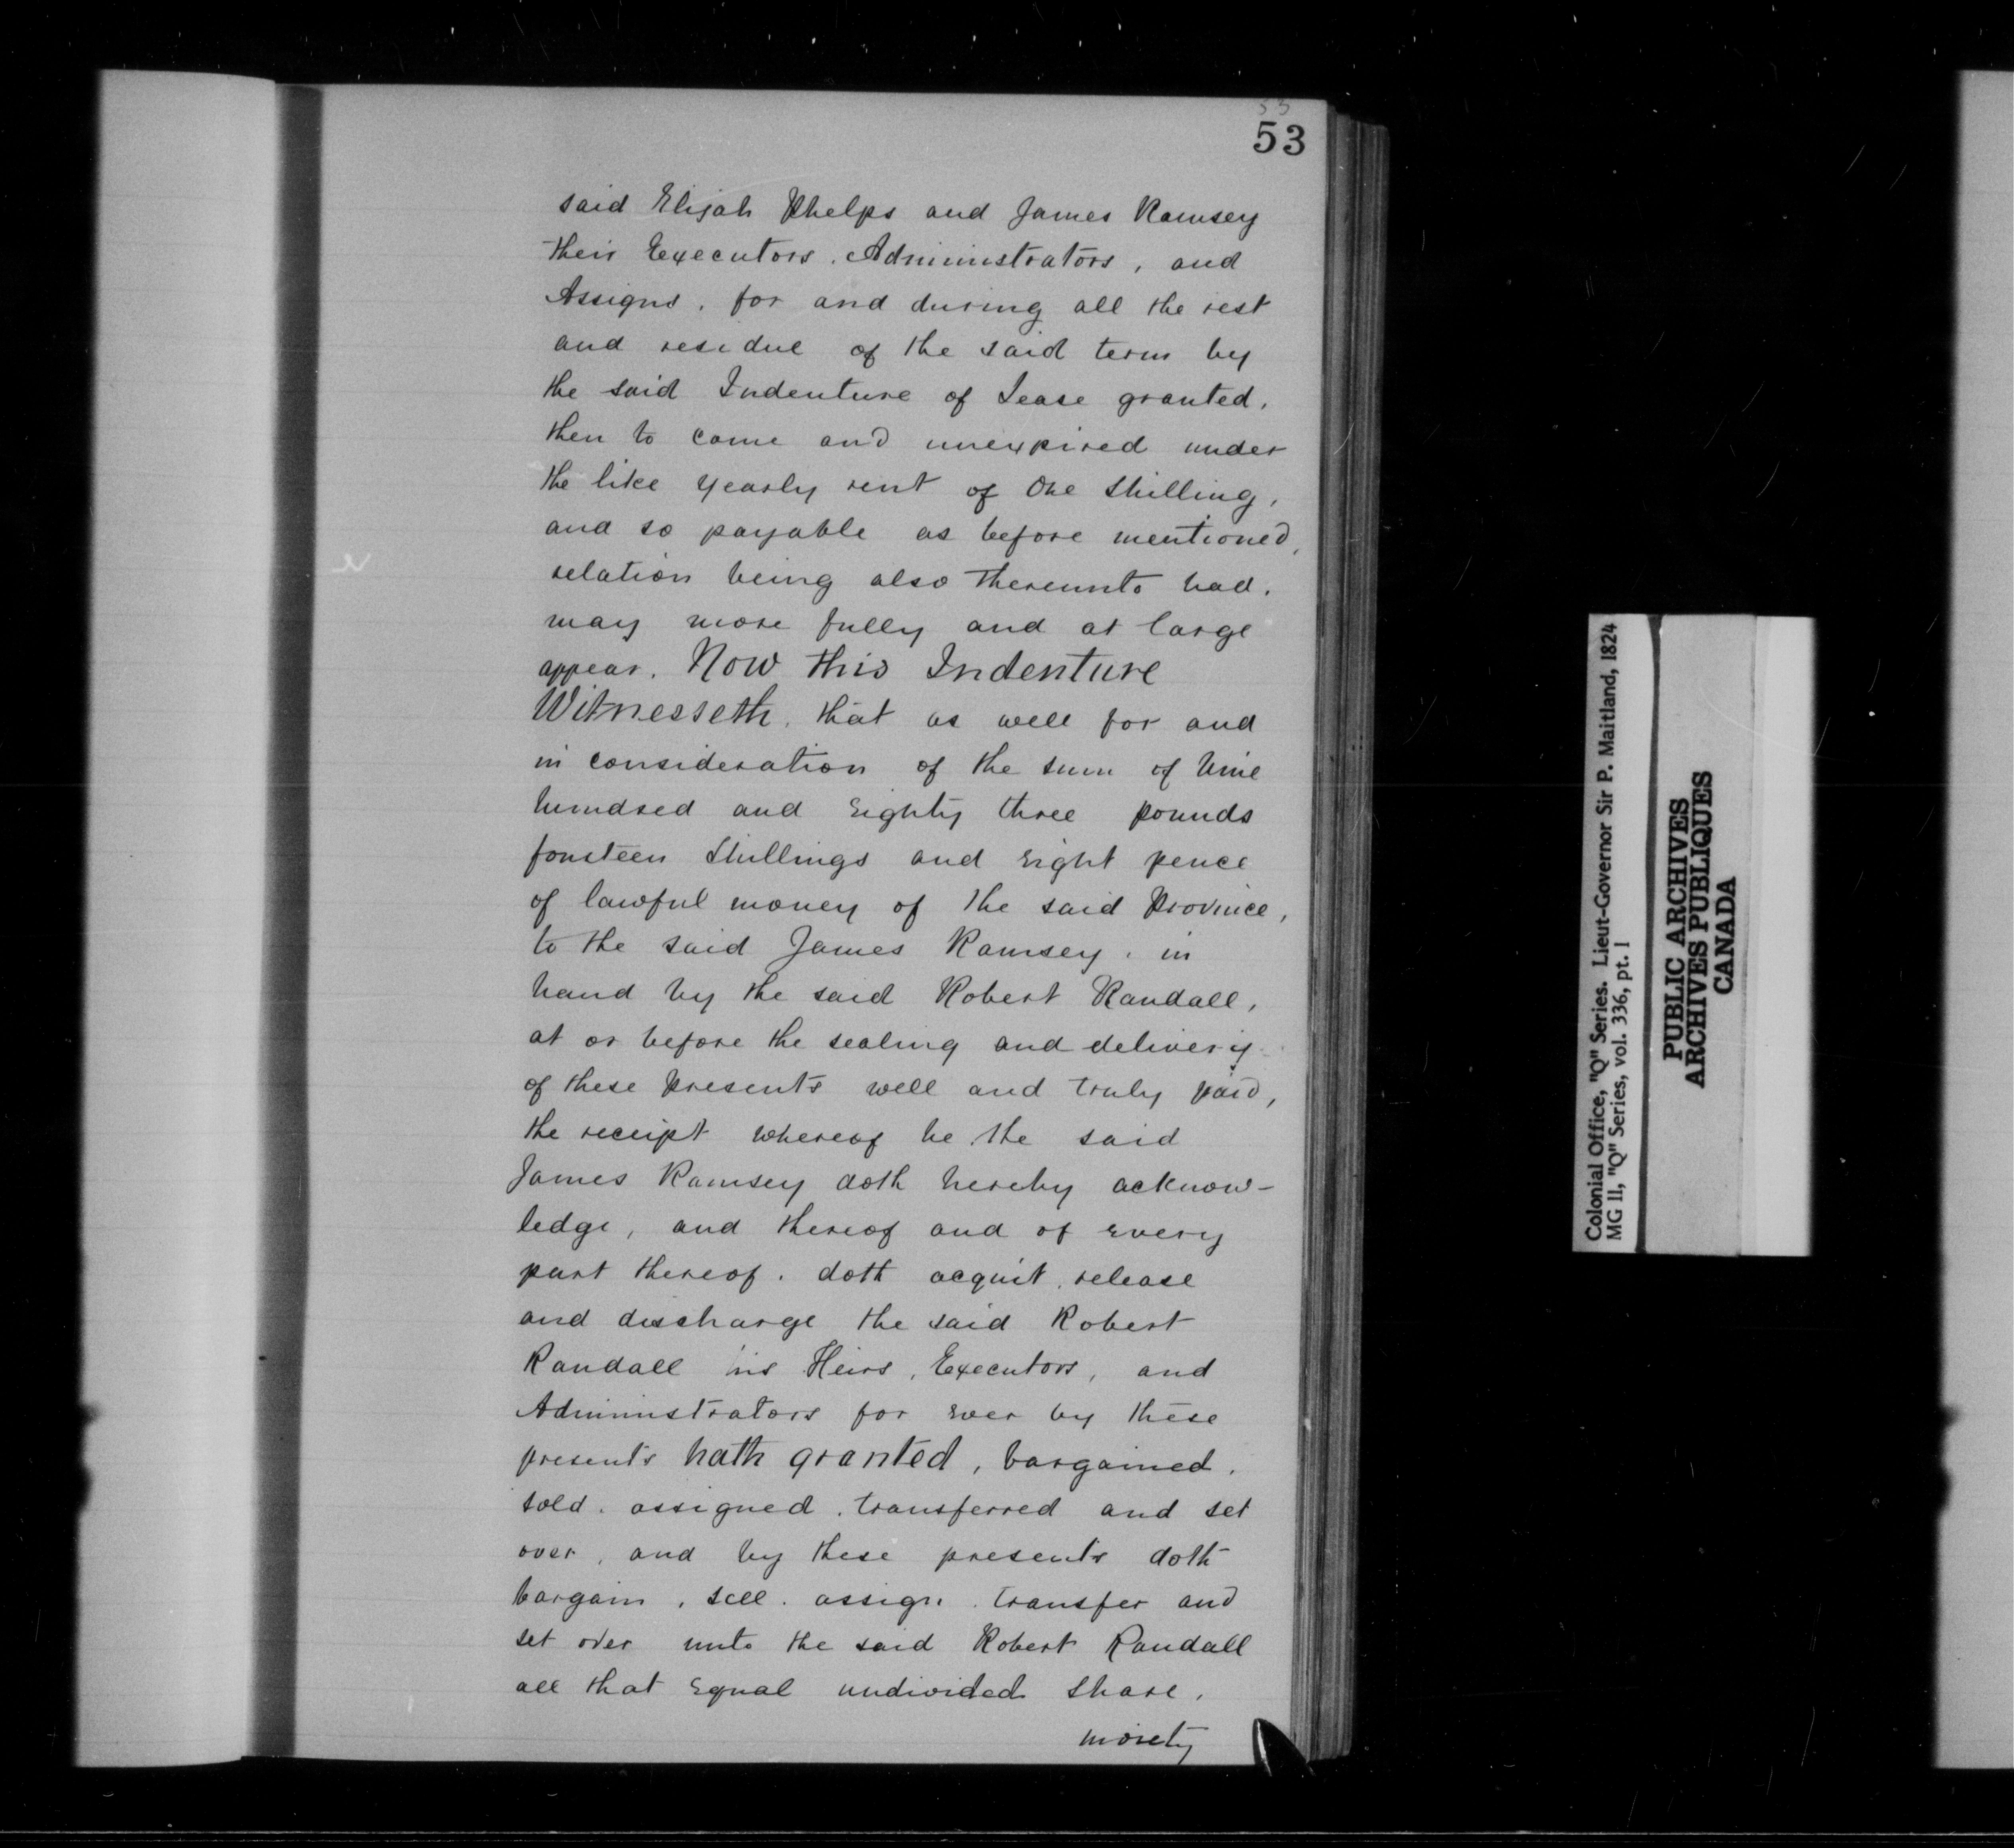 53
53
said Elijah Phelps and James Ramsey
their Executors, Administrators, and
Assigns, for and during all the rest
and residue of the said term by
the said Indenture of Lease granted,
then to come and unexpired under
the like yearly rent of One Shilling,
and so payable as before mentioned,
relation being also thereunto had,
may more fully and at large
appear. Now this Indenture
Witnesseth, that as well for and
in consideration of the sum of Nine
hundred and Eighty three pounds
fourteen Shillings and Eight pence
of lawful money of the said Province,
to the said James Ramsey, in
hand by the said Robert Randall,
at or before the sealing and delivery
of these Presents well and truly paid,
the receipt whereof he the said
James Ramsey doth hereby acknow-
ledge, and thereof and of every
part thereof, doth acquit, release
and discharge the said Robert
Randall his Heirs, Executors, and
Administrators for ever by these
presents hath granted, bargained,
sold, assigned, transferred and set
over, and by these presents doth
bargain, sell, assign, transfer and
set over unto the said Robert Randall
all that Equal undivided share,
moiety
Colonial Office, "Q" Series. Lieut-Governor Sir P. Maitland, 1824
MG 11, "Q" Series, vol. 336, pt. 1
PUBLIC ARCHIVES
ARCHIVES PUBLIQUES
CANADA